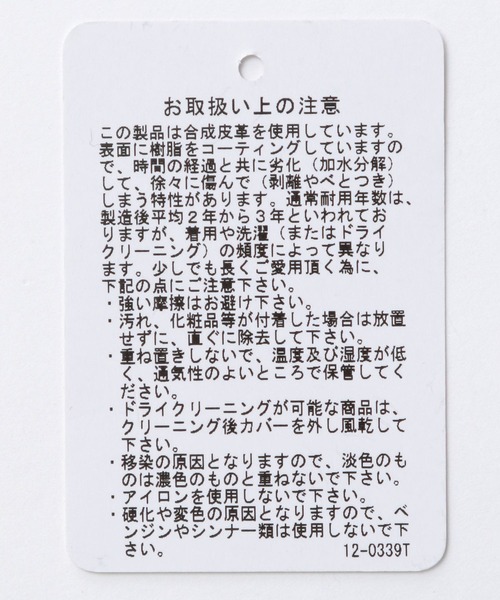 お取扱い上の注意
この製品は合成皮革を使用しています。
表面に樹脂をコーティングしていますの
で、時間の経過と共に劣化（加水分解）
して、徐々に傷んで（剥離やべとつき）
しまう特性があります。通常耐用年数は、
製造後平均２年から３年といわれてお
りますが、着用や洗濯（またはドライ
クリーニング）の頻度によって異なり
ます。少しでも長くご愛用頂く為に、
下記の点にご注意下さい。
・強い摩擦はお避け下さい。
・汚れ、化粧品等が付着した場合は放置
せずに、直ぐに除去して下さい。
・重ね置きしないで、温度及び湿度が低
く、通気性のよいところで保管してく
ださい。
・ドライクリーニングが可能な商品は、
クリーニング後カバーを外し風乾して
下さい。
・移染の原因となりますので、淡色のも
のは濃色のものと重ねないで下さい。
・アイロンを使用しないで下さい。
・硬化や変色の原因となりますので、ベ
ンジンやシンナー類は使用しないで下
さい。
12-0339T